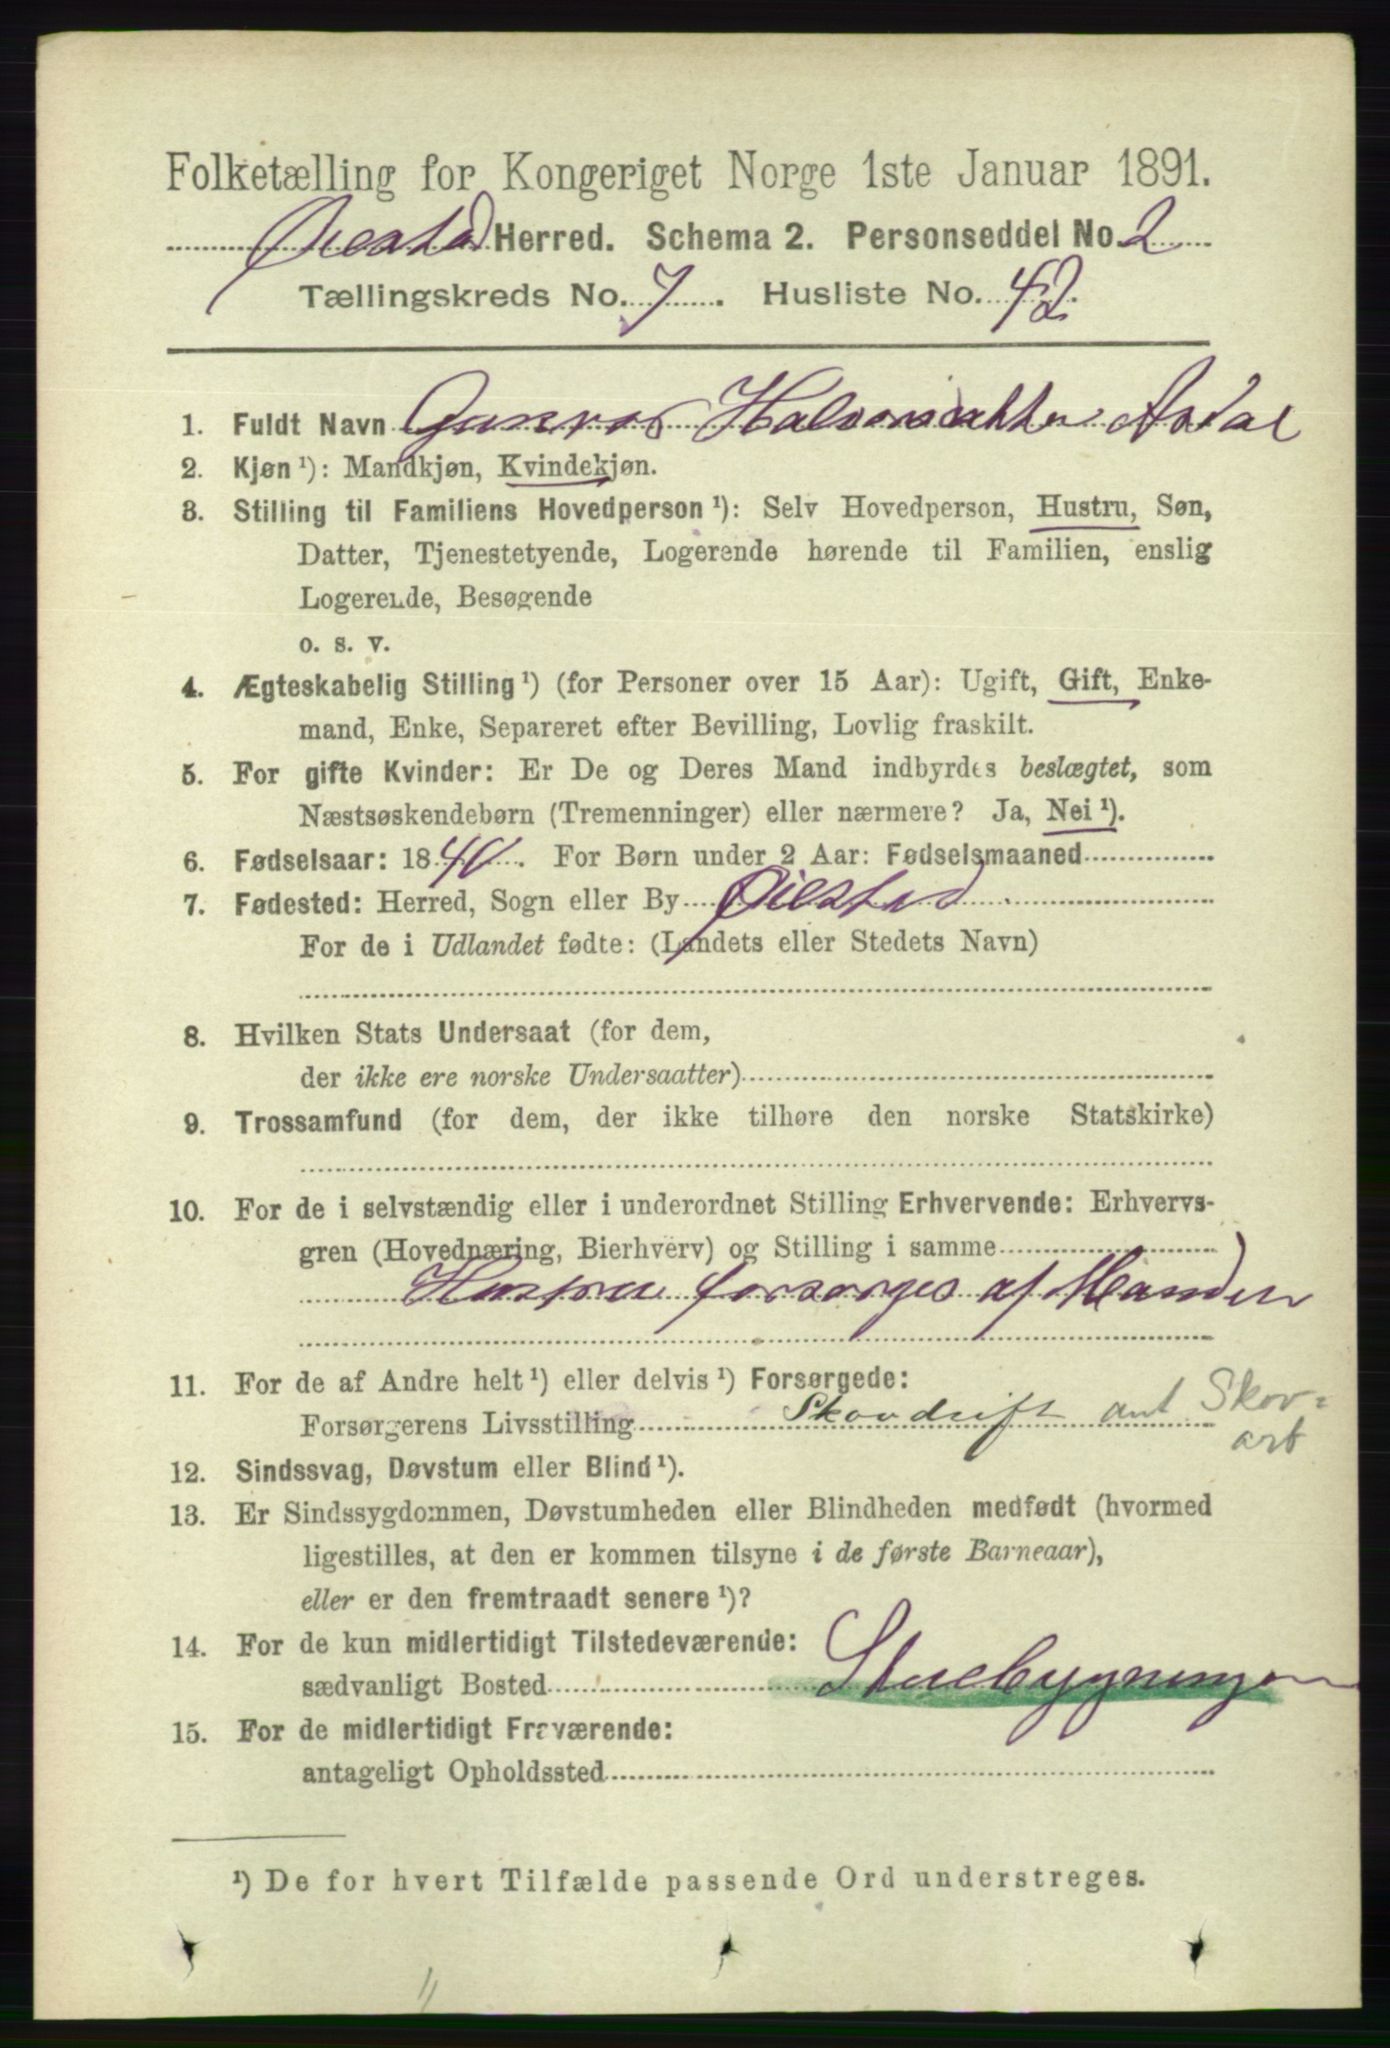 Folketælling for Kongeriget Norge 1ste Januar 1891.
Øiestad Herred. Schema 2. Personseddel No. 2
Tællingskreds No. 7. Husliste No. 42.
1. Fuldt Navn Gunvor Halvorsdatter
2. Kjøn ¹): Mandkjøn, Kvindekjøn.
3. Stilling til Familiens Hovedperson ¹): Selv Hovedperson, Hustru, Søn,
Datter, Tjenestetyende, Logerende hørende til Familien, enslig
Logerende, Besøgende
o. s. v.
4. Ægteskabelig Stilling ¹) (for Personer over 15 Aar): Ugift, Gift, Enke-
mand, Enke, Separeret efter Bevilling, Lovlig fraskilt.
5. For gifte Kvinder: Er De og Deres Mand indbyrdes beslægtet, som
Næstsøskendebørn (Tremenninger) eller nærmere? Ja, Nei ¹).
6. Fødselsaar: 1840. For Børn under 2 Aar: Fødselsmaaned
7. Fødested: Herred, Sogn eller By Øiestad
For de i Udlandet fødte: (Landets eller Stedets Navn)
8. Hvilken Stats Undersaat (for dem,
der ikke ere norske Undersaatter)
9. Trossamfund (for dem, der ikke tilhøre den norske Statskirke)
10. For de i selvstændig eller i underordnet Stilling Erhvervende: Erhvervs-
gren (Hovednæring, Bierhverv) og Stilling i samme
Hustru forsørges af Manden
11. For de af Andre helt ¹) eller delvis ¹) Forsørgede:
Forsørgerens Livsstilling Skovdrift ant Skov-
arb
12. Sindssvag, Døvstum eller Blind ¹).
13. Er Sindssygdommen, Døvstumheden eller Blindheden medfødt (hvormed
ligestilles, at den er kommen tilsyne i de første Barneaar),
eller er den fremtraadt senere ¹)?
14. For de kun midlertidigt Tilstedeværende:
sædvanligt Bosted Stuebygningen
15. For de midlertidigt Fraværende:
antageligt Opholdssted
¹) De for hvert Tilfælde passende Ord understreges.